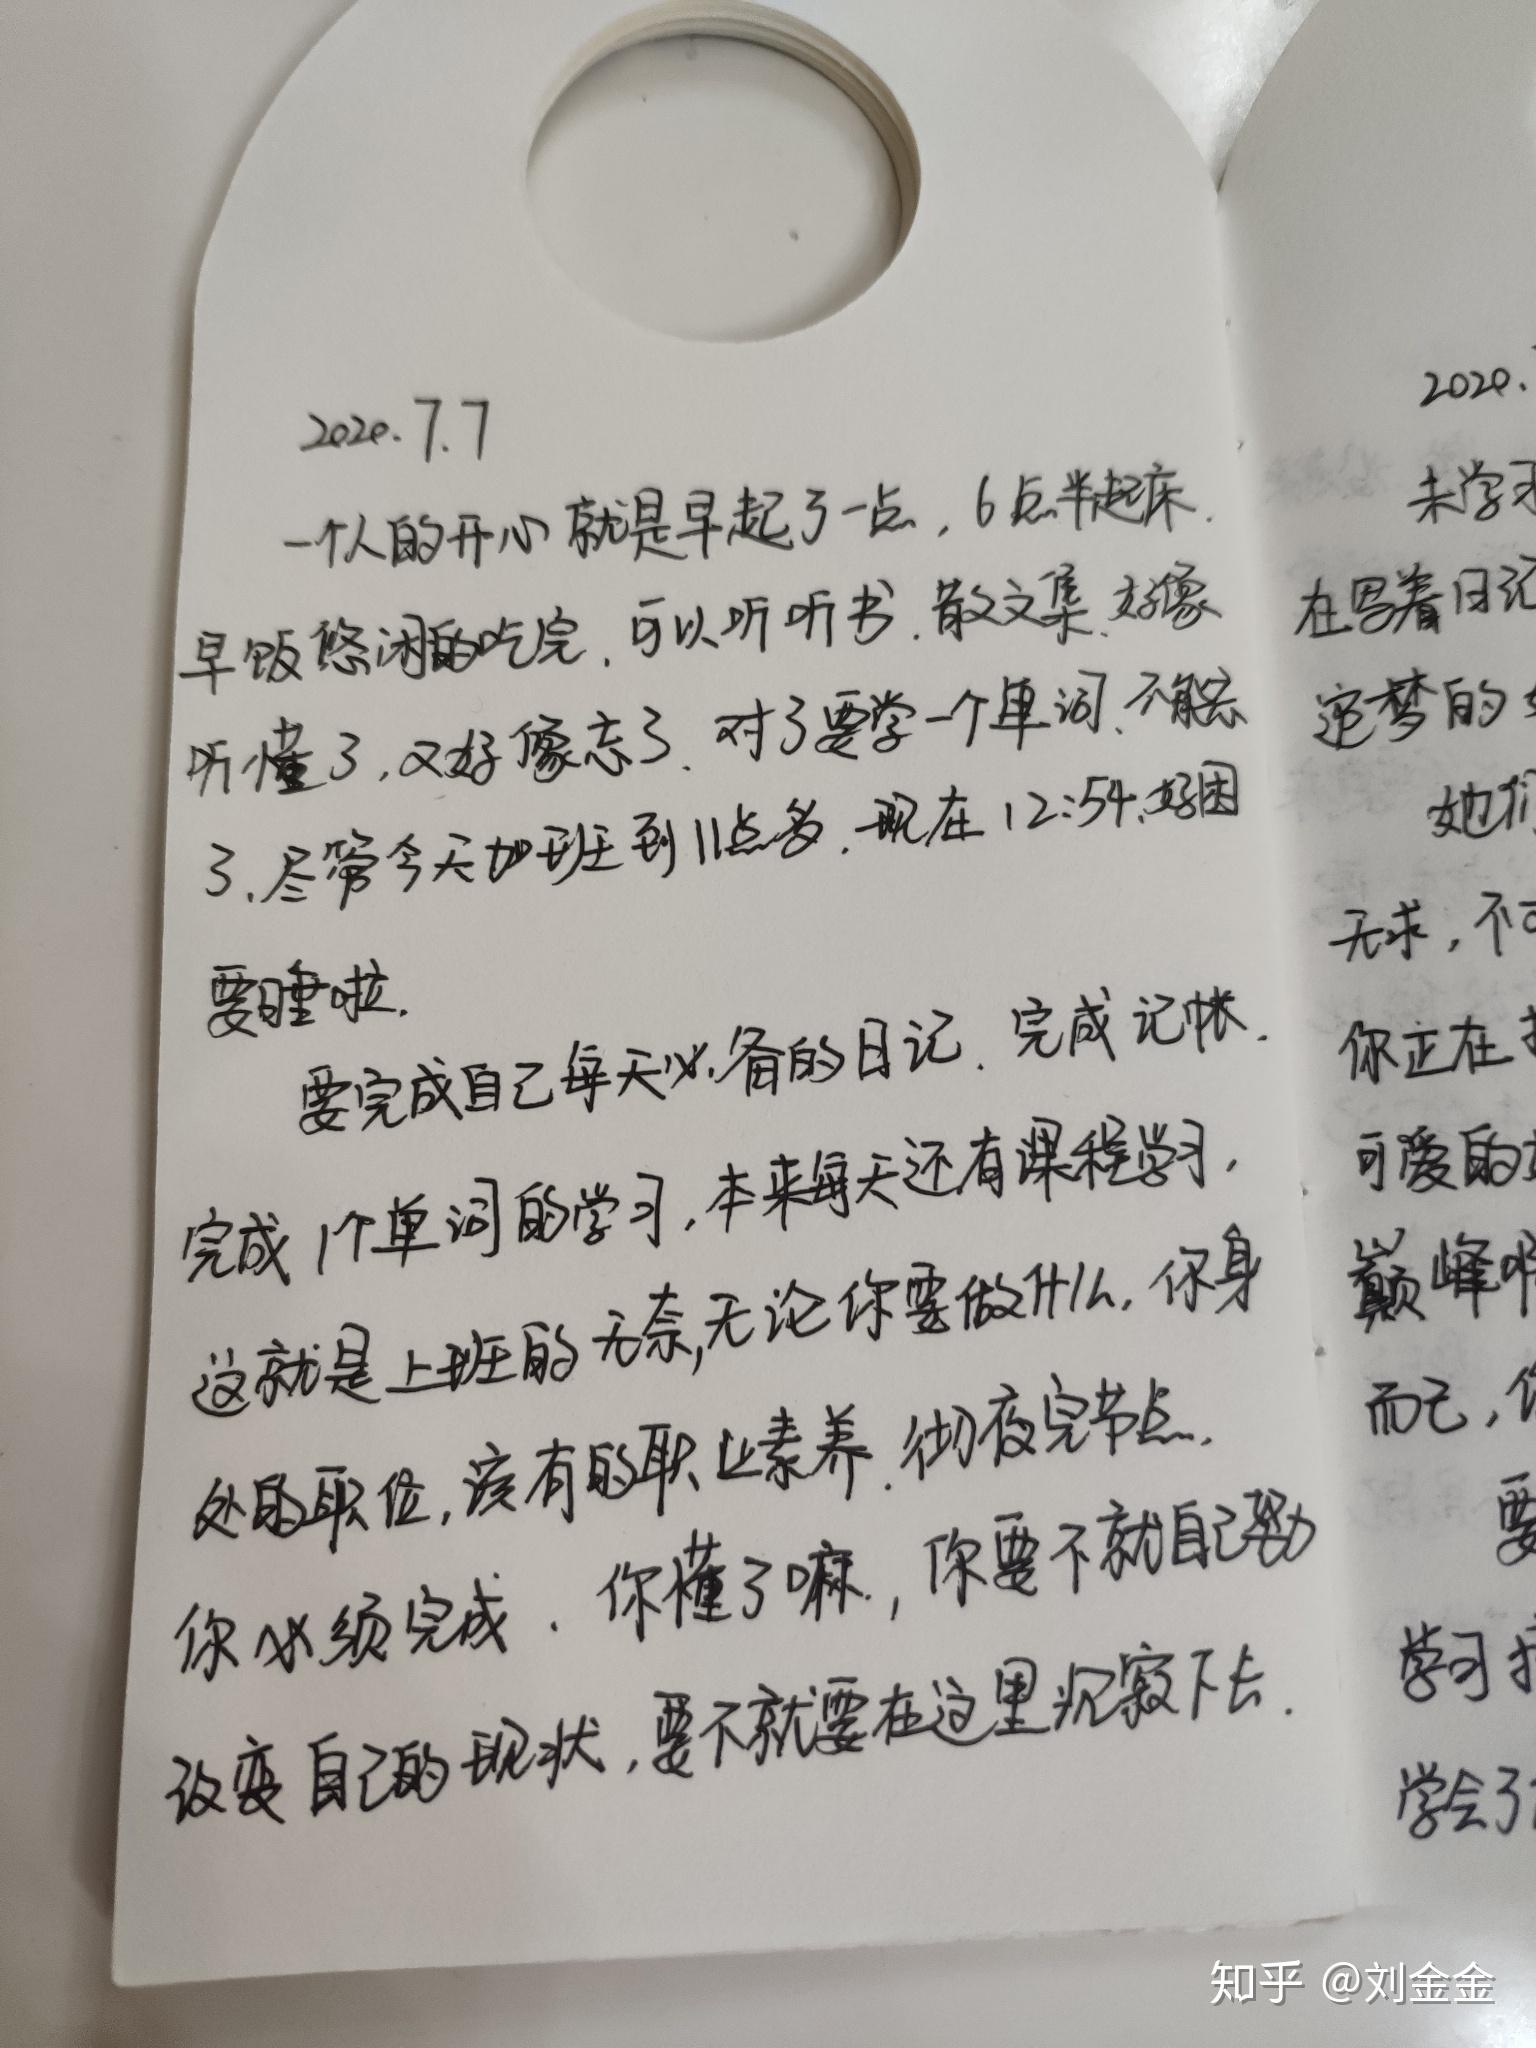 2020.7.7
一个人的开心就是早起了一点，6点半起床.
早饭悠闲的吃完.可以听听书.散文集.好像
听懂了,又好像忘了.对了要学一个单词.不能忘
了.尽管今天加班到11点多.现在12:54.好困
要睡啦.
要完成自己每天必备的日记.完成记帐.
完成1个单词的学习,本来每天还有课程学习,
这就是上班的无奈,无论你要做什么,你身
处的职位,该有的职业素养.彻夜完节点.
你必须完成.你懂了嘛.,你要不就自己努力
改变自己的现状,要不就要在这里沉寂下去.
2020.
未学习
在写着日记
追梦的
她们
无求,不可
你正在
可爱的
巅峰啊
而已,你
要
学习
学会了
知乎 @刘金金